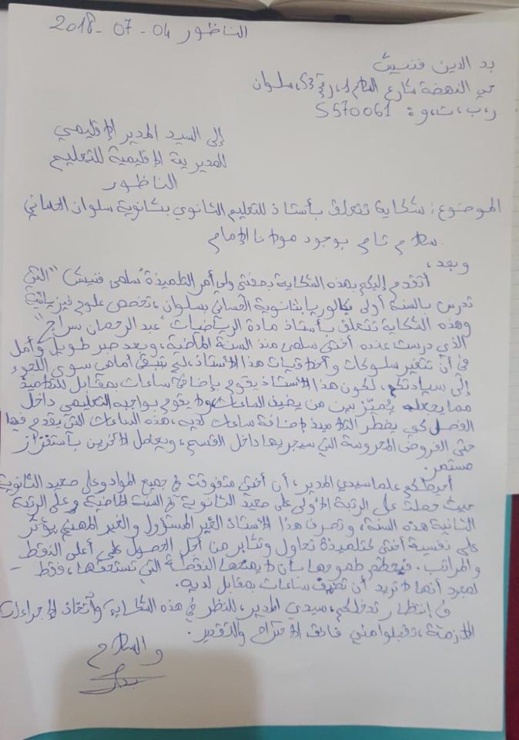 الناظور 04-07-2018
بدر الدين فنيش
حي النهضة شارع السلام 1، رقم 53، سلوان
ر،ب،ت،و: S570061
إلى السيد المدير الإقليمي
المديرية الإقليمية للتعليم
الناظور
الموضوع: شكاية تتعلق بأستاذ للتعليم الثانوي بثانوية سلوان
سلام تام بوجود مولانا الإمام
وبعد،
أتقدم إليكم بهذه الشكاية بصفتي ولي أمر التلميذة "سلمى فنيش" التي
تدرس بالسنة أولى بكالوريا بثانوية بسلوان، تخصص علوم فيزيائية
وهذه الشكاية تتعلق بأستاذ مادة الرياضيات "عبد الرحمان سراج"
الذي درست عنده أختي سلمى منذ السنة الماضية، وبعد صبر طويل وأمل
في أن تتغير سلوكات وأخلاقيات هذا الأستاذ، لم تتبقى أمامي سوى اللجوء
إلى سيادتكم، لكون هذا الأستاذ يقوم بإضافة ساعات بمقابل للتلاميذ
مما يجعله يميز بين من يضيف الساعات ولا يقوم بواجبه التعليمي داخل
الفصل كي يضطر التلاميذ لإضافة ساعات لديه، هذه الساعات التي يقدم فيها
حتى الفروض المحروسة التي سيجريها داخل القسم، ويعامل الآخرين بأستفزاز
مستمر.
أحيطكم علما سيدي المدير، أن أختي متفوقة في جميع المواد وعلى صعيد الثانوية
حيث حصلت على الرتبة الأولى على صعيد الثانوية في السنة الماضية وعلى الرتبة
الثانية هذه السنة، وتصرف هذا الأستاذ الغير المسؤول والغير المهني يؤثر
على نفسية أختي كتلميذة تحاول وتثابر من أجل الحصول على أعلى النقط
والمراتب، فيحطم طموحها بأن لا يمنحها النقطة التي تستحقها، فقط
لمجرد أنها لا تريد أن تضيف ساعات بمقابل لديه.
في إنتظار تدخلكم، سيدي المدير، للنظر في هذه الشكاية وأتخاذ الإجراءات
اللازمة، تقبلوا مني فائق الإحترام والتقدير.
والسلام